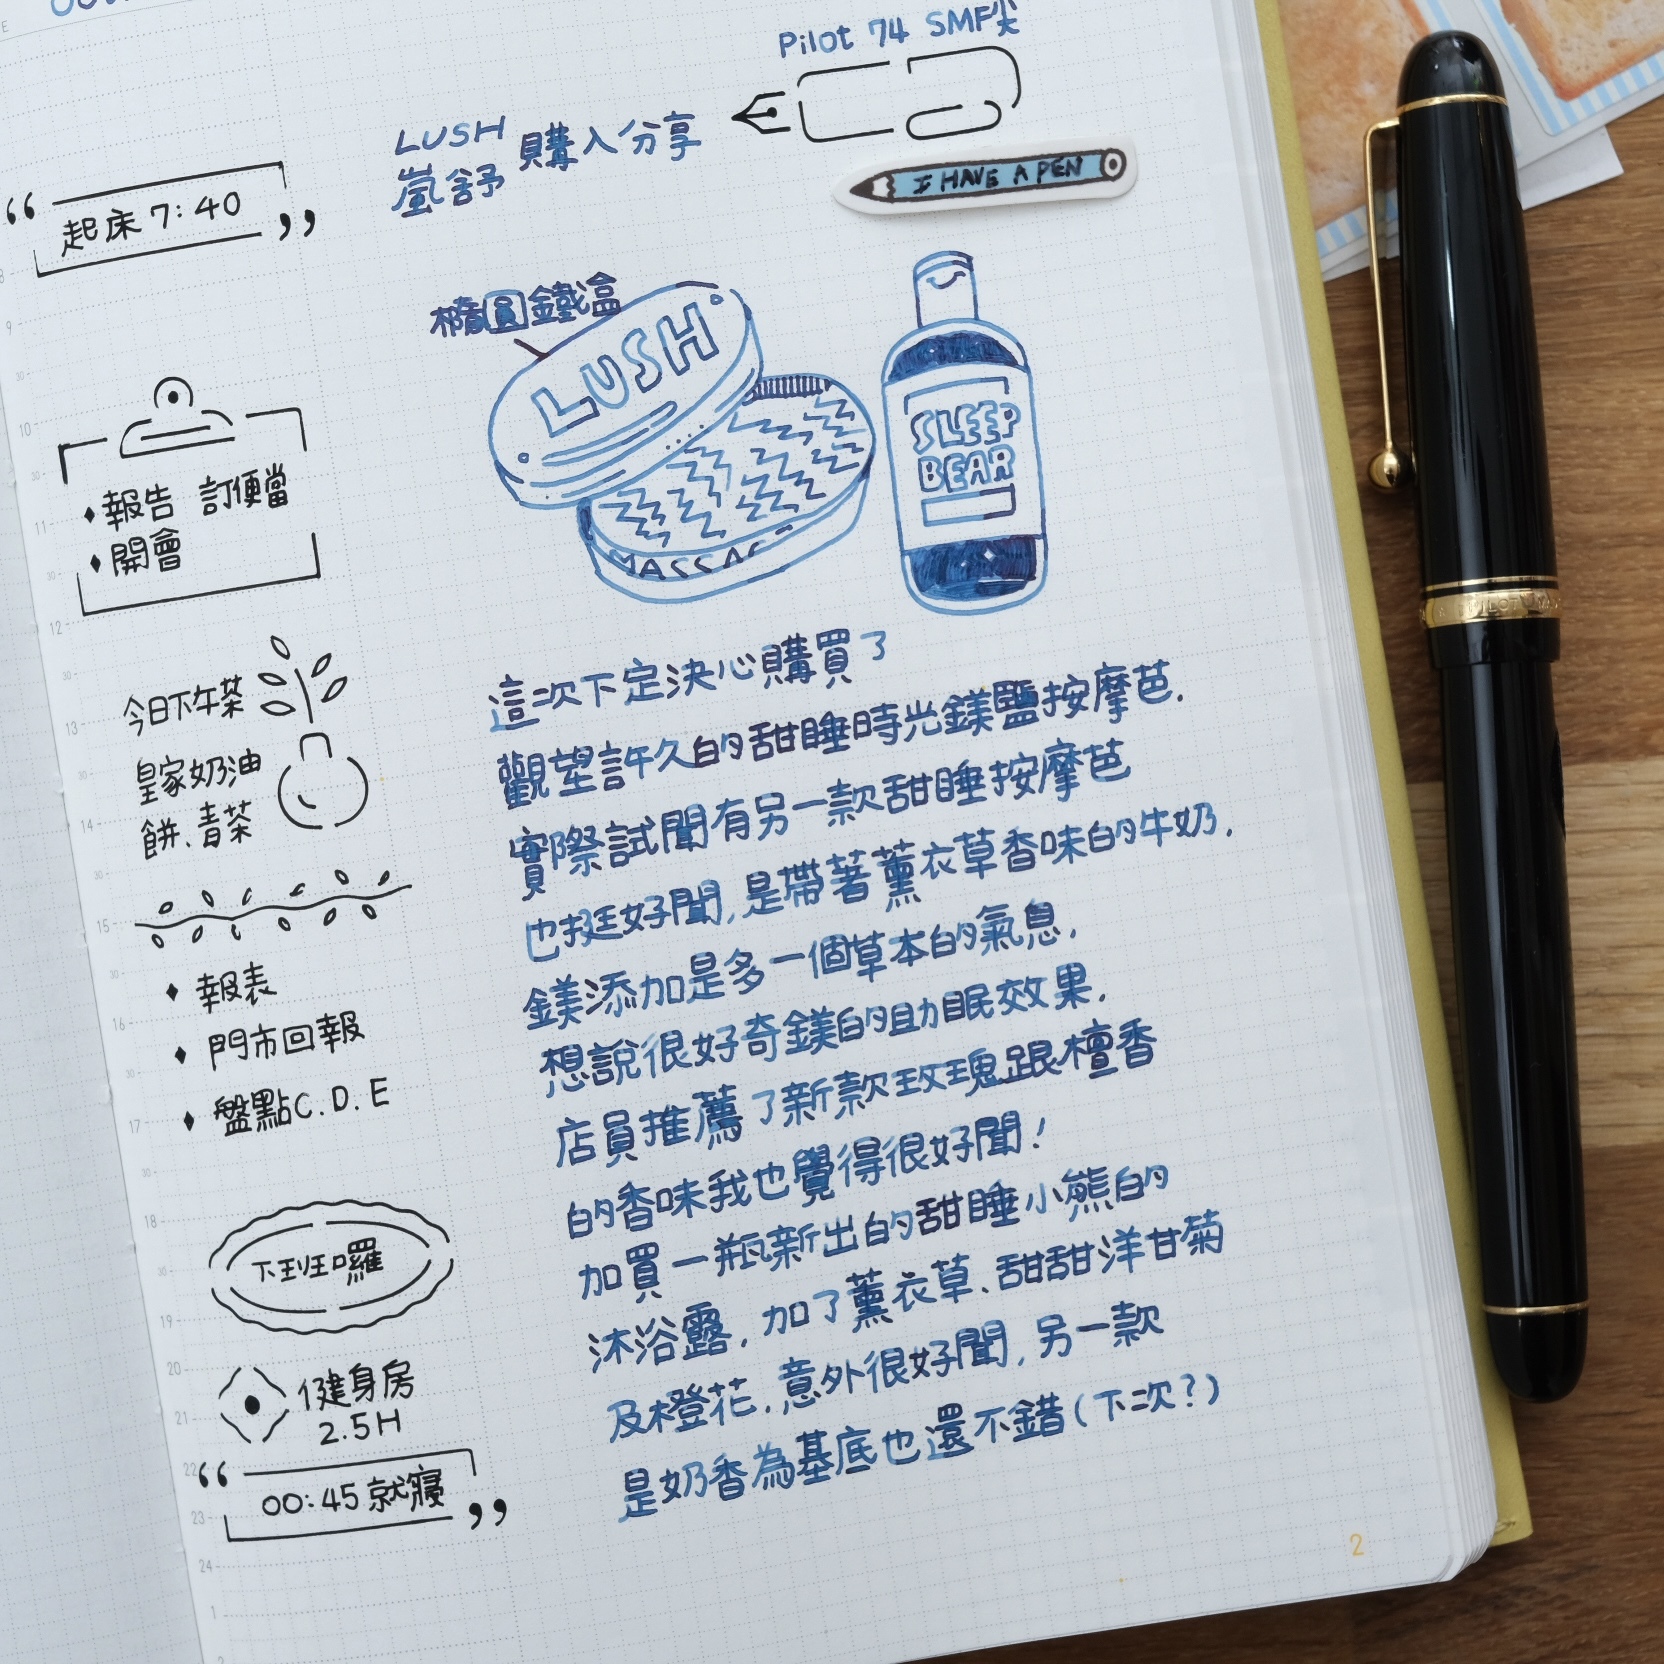 Pilot 74 SMF尖
LUSH
嵐舒 購入分享
I HAVE A PEN
“ 起床 7:40 ”
橢圓鐵盒
LUSH
MASSAG
SLEEP
BEAR
• 報告 訂便當
• 開會
今日下午茶
皇家奶油
餅、青茶
• 報表
• 門市回報
• 盤點C.D.E
下班囉
健身房
2.5H
“ 00:45就寢 ”
這次下定決心購買了
觀望許久的甜睡時光鎂鹽按摩芭.
實際試聞有另一款甜睡按摩芭
也挺好聞,是帶著薰衣草香味的牛奶.
鎂添加是多一個草本的氣息,
想說很好奇鎂的助眠效果.
店員推薦了新款玫瑰跟檀香
的香味我也覺得很好聞!
加買一瓶新出的甜睡小熊的
沐浴露,加了薰衣草、甜甜洋甘菊
及橙花,意外很好聞,另一款
是奶香為基底也還不錯(下次?)
2
8
9
10
11
12
13
14
15
16
17
18
19
20
21
22
23
24
1
PILOT